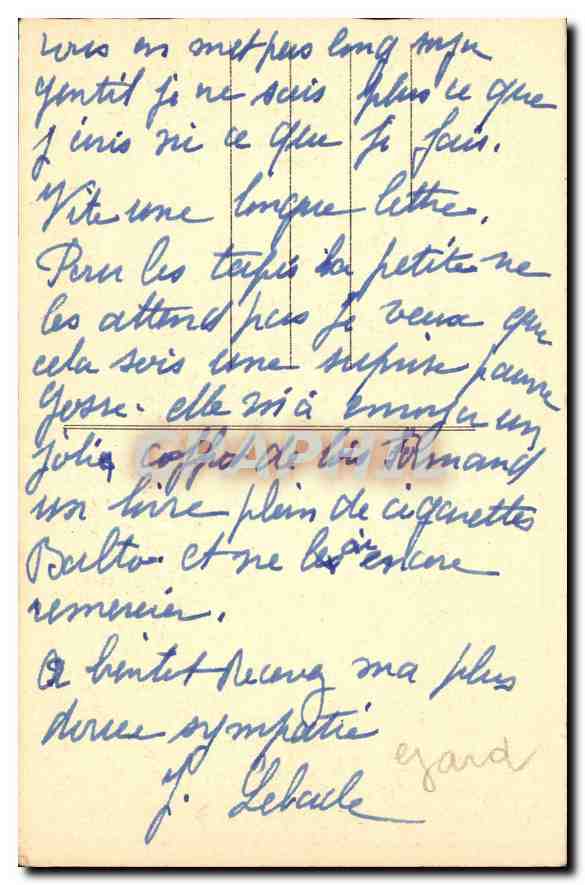 vous en met pas long mju
gentil je ne sais plus ce que
j'ecris ni ce que je fais.
Vite une longue lettre.
Pour les tapis la petite ne
les attend pas je veux que
cela sois une surprise pauvre
gosse. elle m'a envoyer un
jolie coffret de bois Armand
un livre plein de cigarettes
Balto. et ne les ai encore
remercier.
A bientot Recevez ma plus
douce sympatie
J. Lebacle
ezard